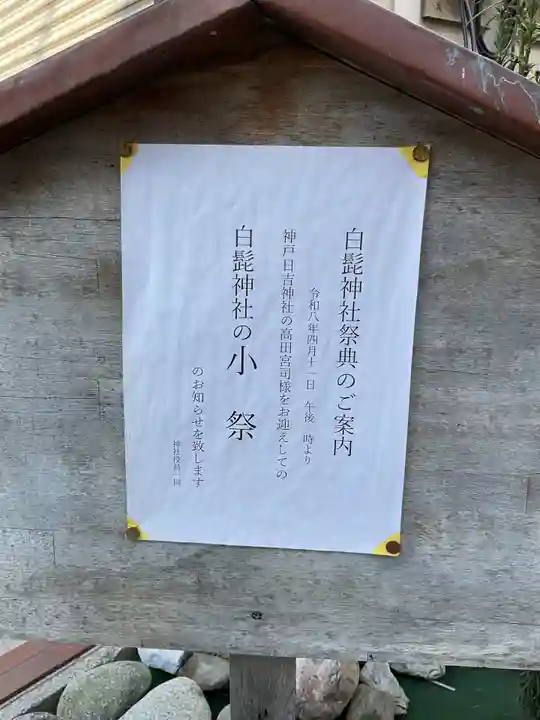 白髭神社祭典のご案内
令和八年四月十一日　午後　時より
神戸日吉神社の高田宮司様をお迎えしての
白髭神社の小　祭
のお知らせを致します
神社役員一同